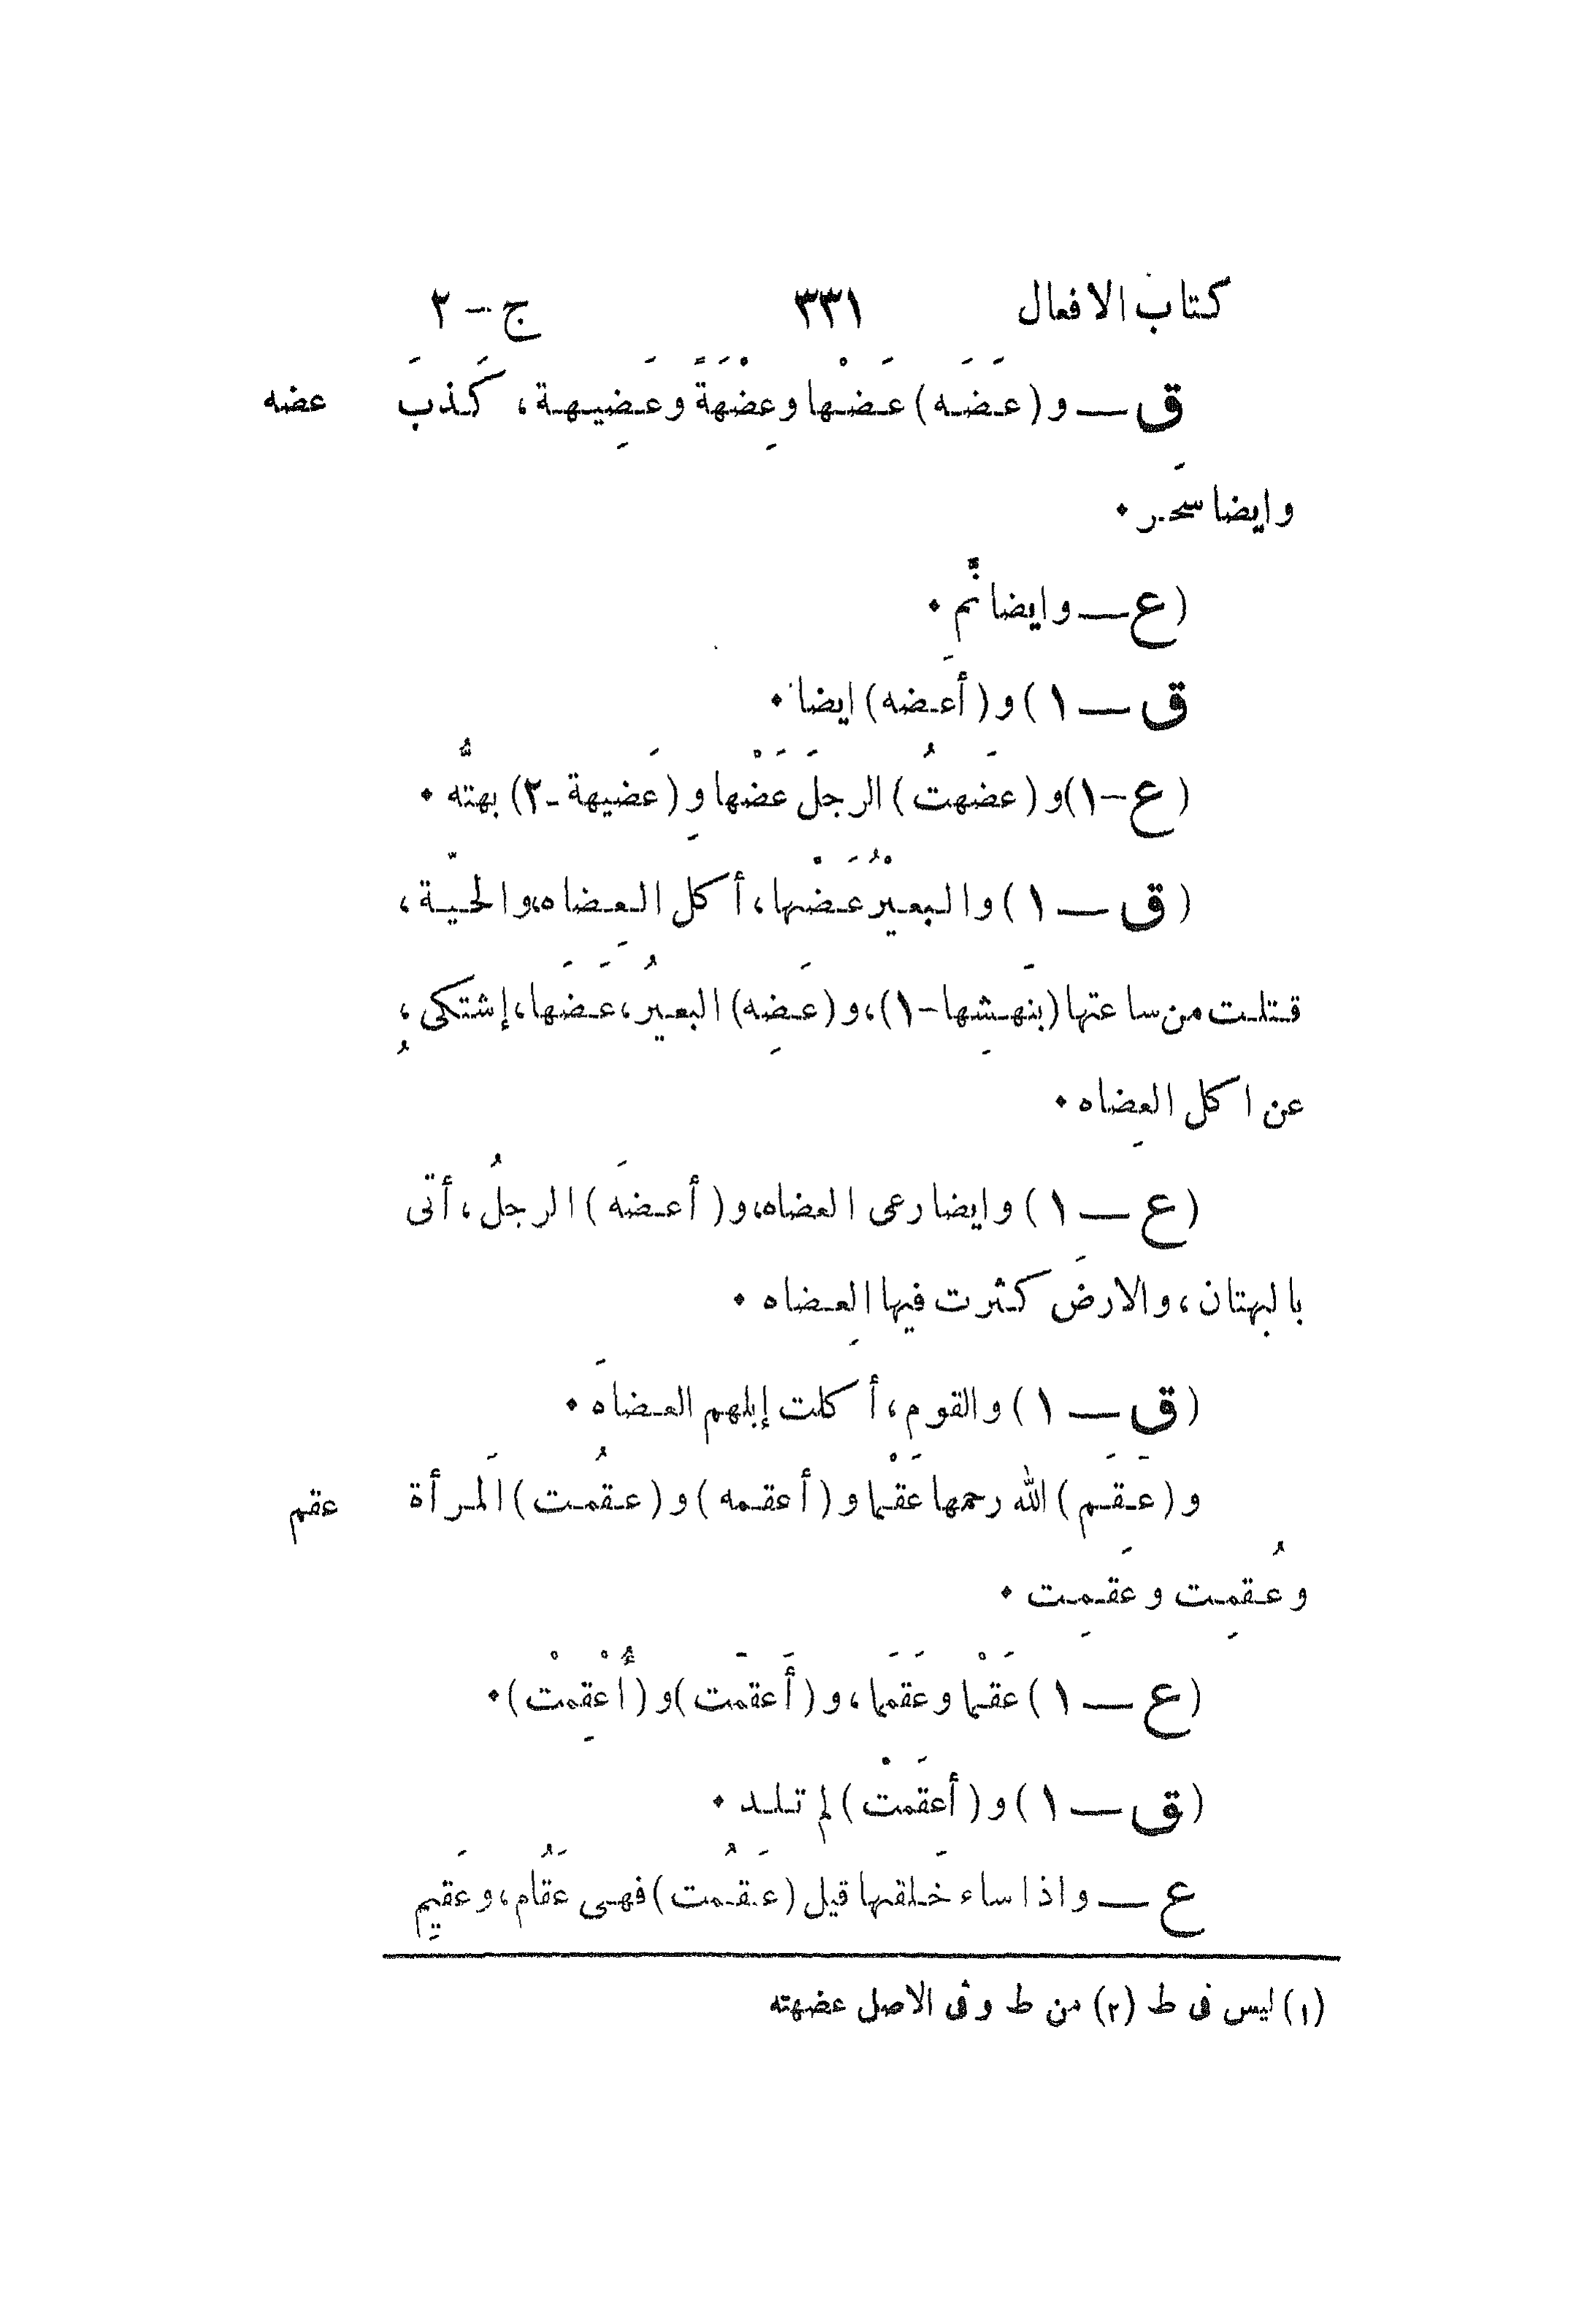 كتاب الافعال ٣٣١ ج - ٢
ق — و (عَضَه) عَضْها وعِضْهَةً وعَضِيهة، كَذبَ عضه
وايضا سحَر ٠
(ع — وايضا نَّم ٠
ق — ١) و (أعَضه) ايضا ٠
(ع - ١) و (عضَهتُ) الرجلَ عَضْها وِ (عَضيهة - ٢) بهتُّه ٠
(ق — ١) والبعيْرُ عَضْها، أكل العِضاه، والحيّة،
قتلت من ساعتها (بنَهشِها - ١)، و (عَضِه) البعيرُ، عَضَها، إشتكى،
عن اكل العِضاه ٠
(ع — ١) وايضا رعى العضاه، و (أعضَه) الرجلُ، أتى
بالبهتان، والارضَ كثرت فيها العِضاه ٠
(ق — ١) والقوم، أكلت إبلهم العضاهَ ٠
و (عَقَم) الله رحمها عَقْما و (أعقمه) و (عقُمت) المَرأة عقم
وعُقمِت وعَقمِت ٠
(ع — ١) عَقْما وعَقَما، و (أَعقمَت) و (أُعْقِمْت) ٠
(ق — ١) و (أعقَمتْ) لم تلد ٠
ع — واذا ساء خَلقها قيل (عَقُمت) فهى عَقُام، وعَقيِم
(١) ليس فى ط (٢) من ط وفى الاصل عضهته